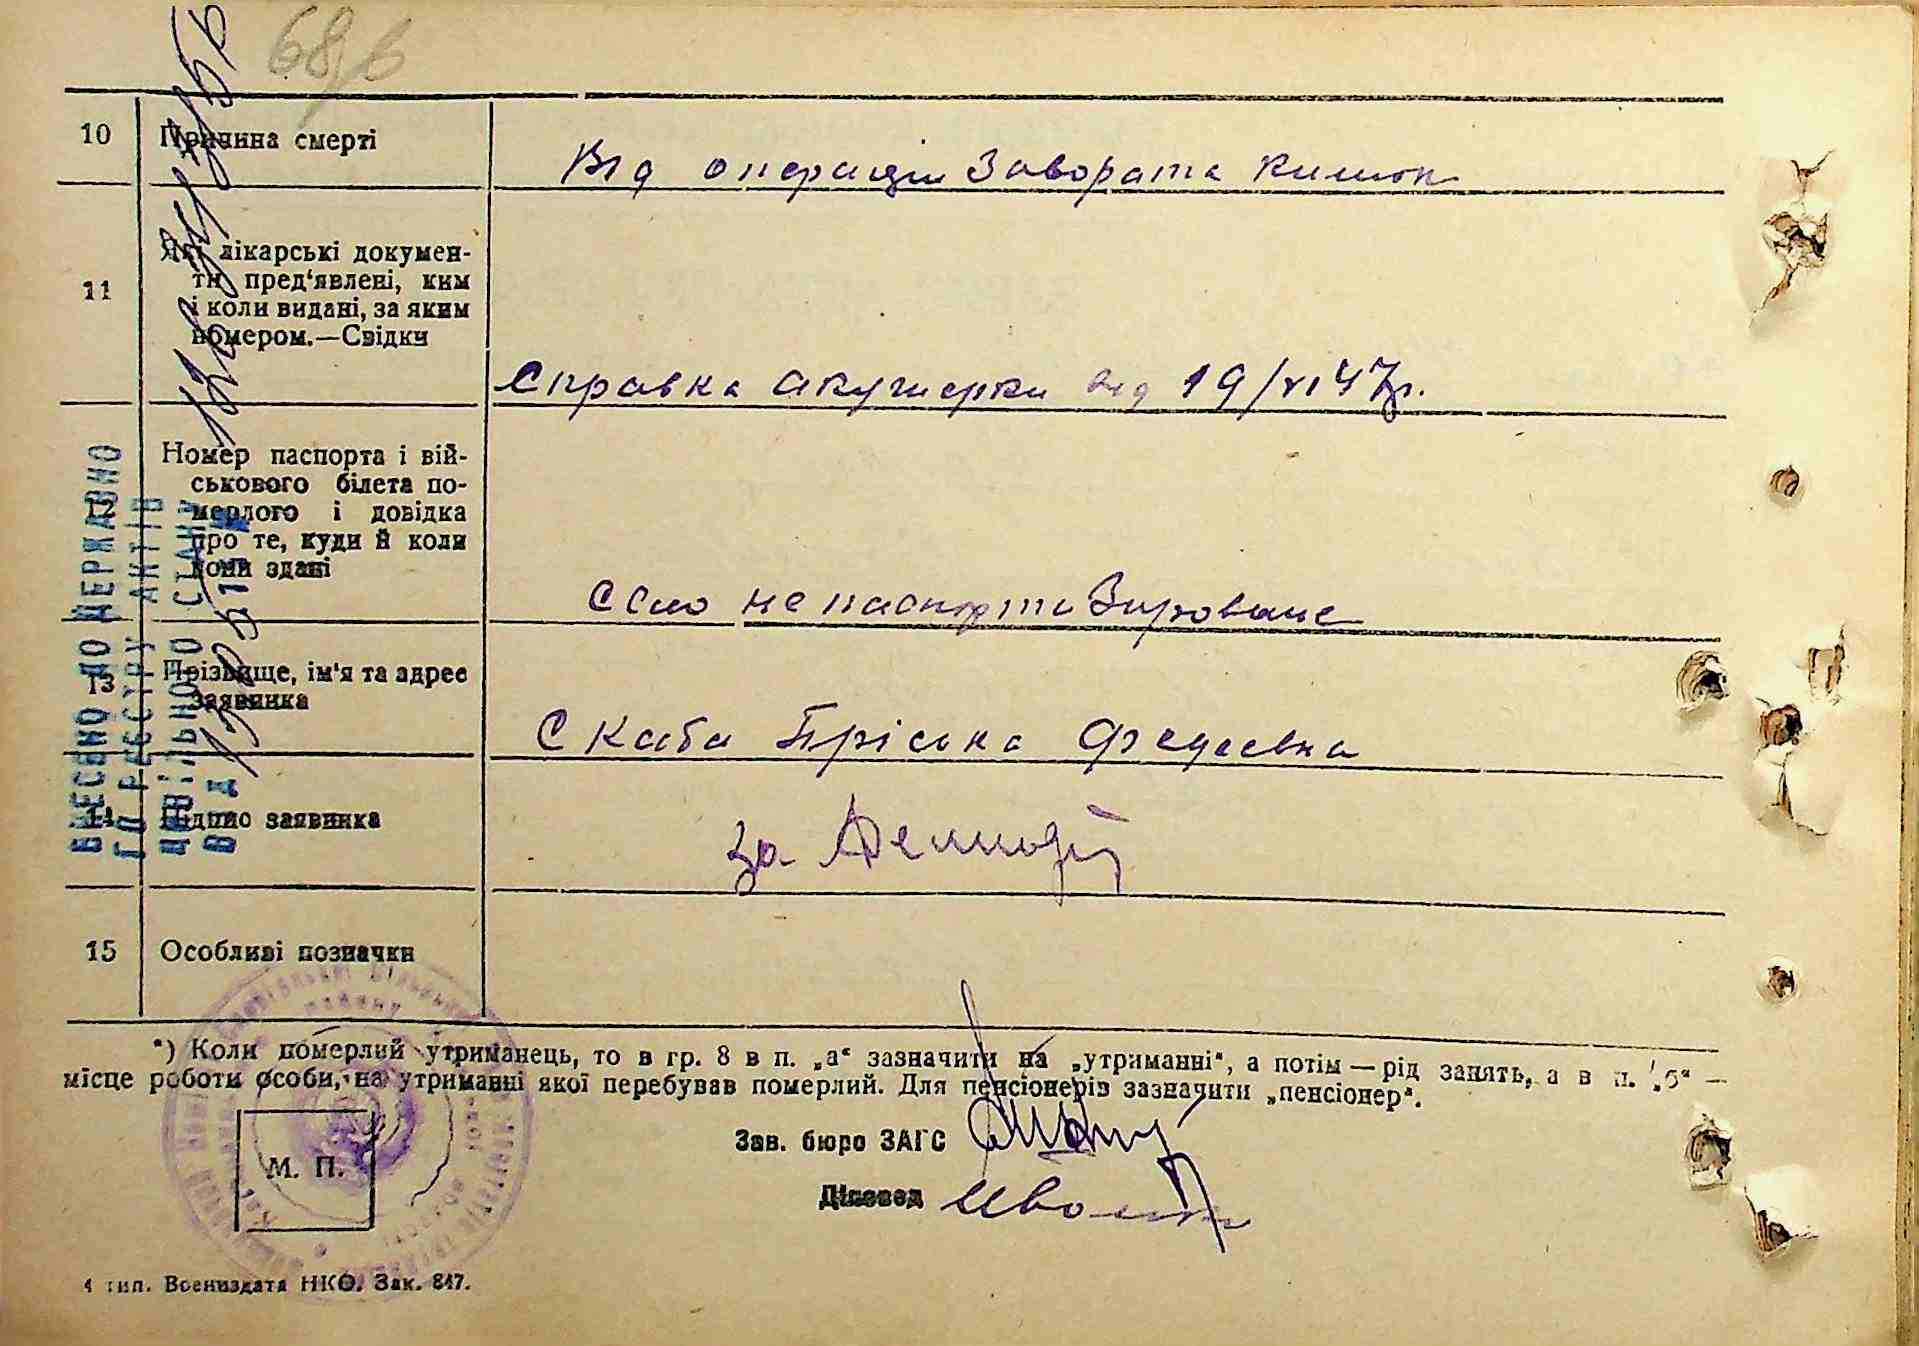 10 Причина смерті
Від операціи Заворота Кишок
11 Які лікарські докумен-
ти пред'явлені, ким
і коли видані, за яким
номером.—Свідки
Справка акушерки від 19/VI 47г.
12 Номер паспорта і вій-
ськового білета по-
мерлого і довідка
про те, куди й коли
вони здані
Село не паспортизироване
13 Прізвище, ім'я та адрес
заявника
Скаба Пріська Федеевна
14 Підпис заявника
за
15 Особливі позначки
*) Коли померлий утриманець, то в гр. 8 в п. „а“ зазначити на „утриманні“, а потім — рід занять, а в п. „б“ —
місце роботи особи, на утриманні якої перебував померлий. Для пенсіонерів зазначити „пенсіонер“.
Зав. бюро ЗАГС
М. П.
Діловод
4 тип. Воениздата НКО. Зак. 847.
ВНЕСЕНО ДО ДЕРЖАВНО
ГО РЕЄСТРУ АКТІВ
ЦИВІЛЬНОГО СТАНУ
ВІД